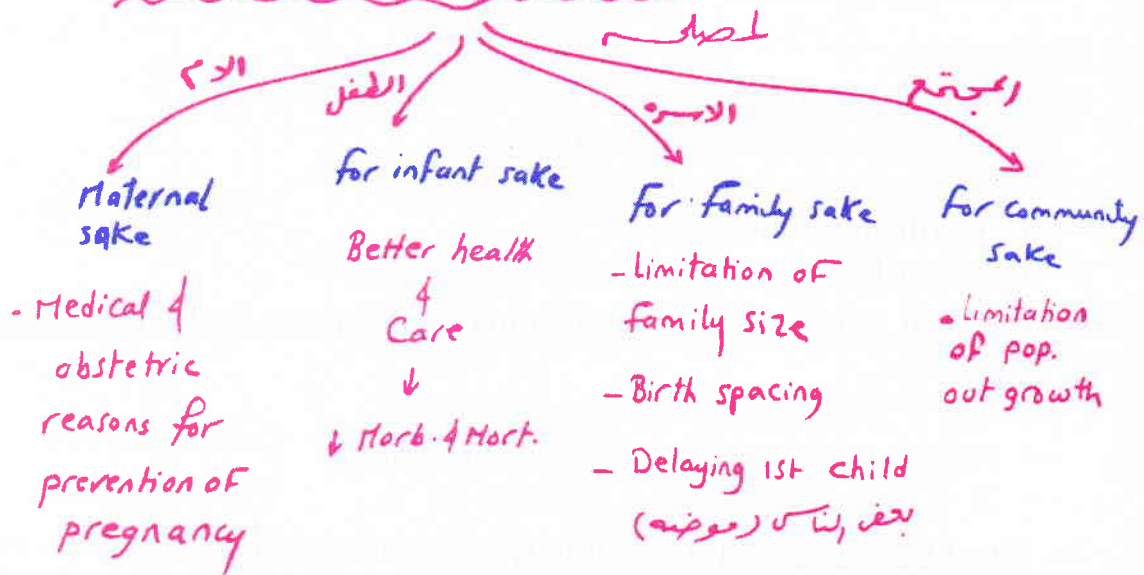 لمصلحة
الام
الطفل
الاسره
المجتمع
Maternal
sake
- Medical &
obstetric
reasons for
prevention of
pregnancy
for infant sake
Better health
&
Care
↓
↓ Morb. & Mort.
For family sake
- Limitation of
family size
- Birth spacing
- Delaying 1st child
بعض الناس (موضه)
For community
sake
. Limitation
of pop.
out growth